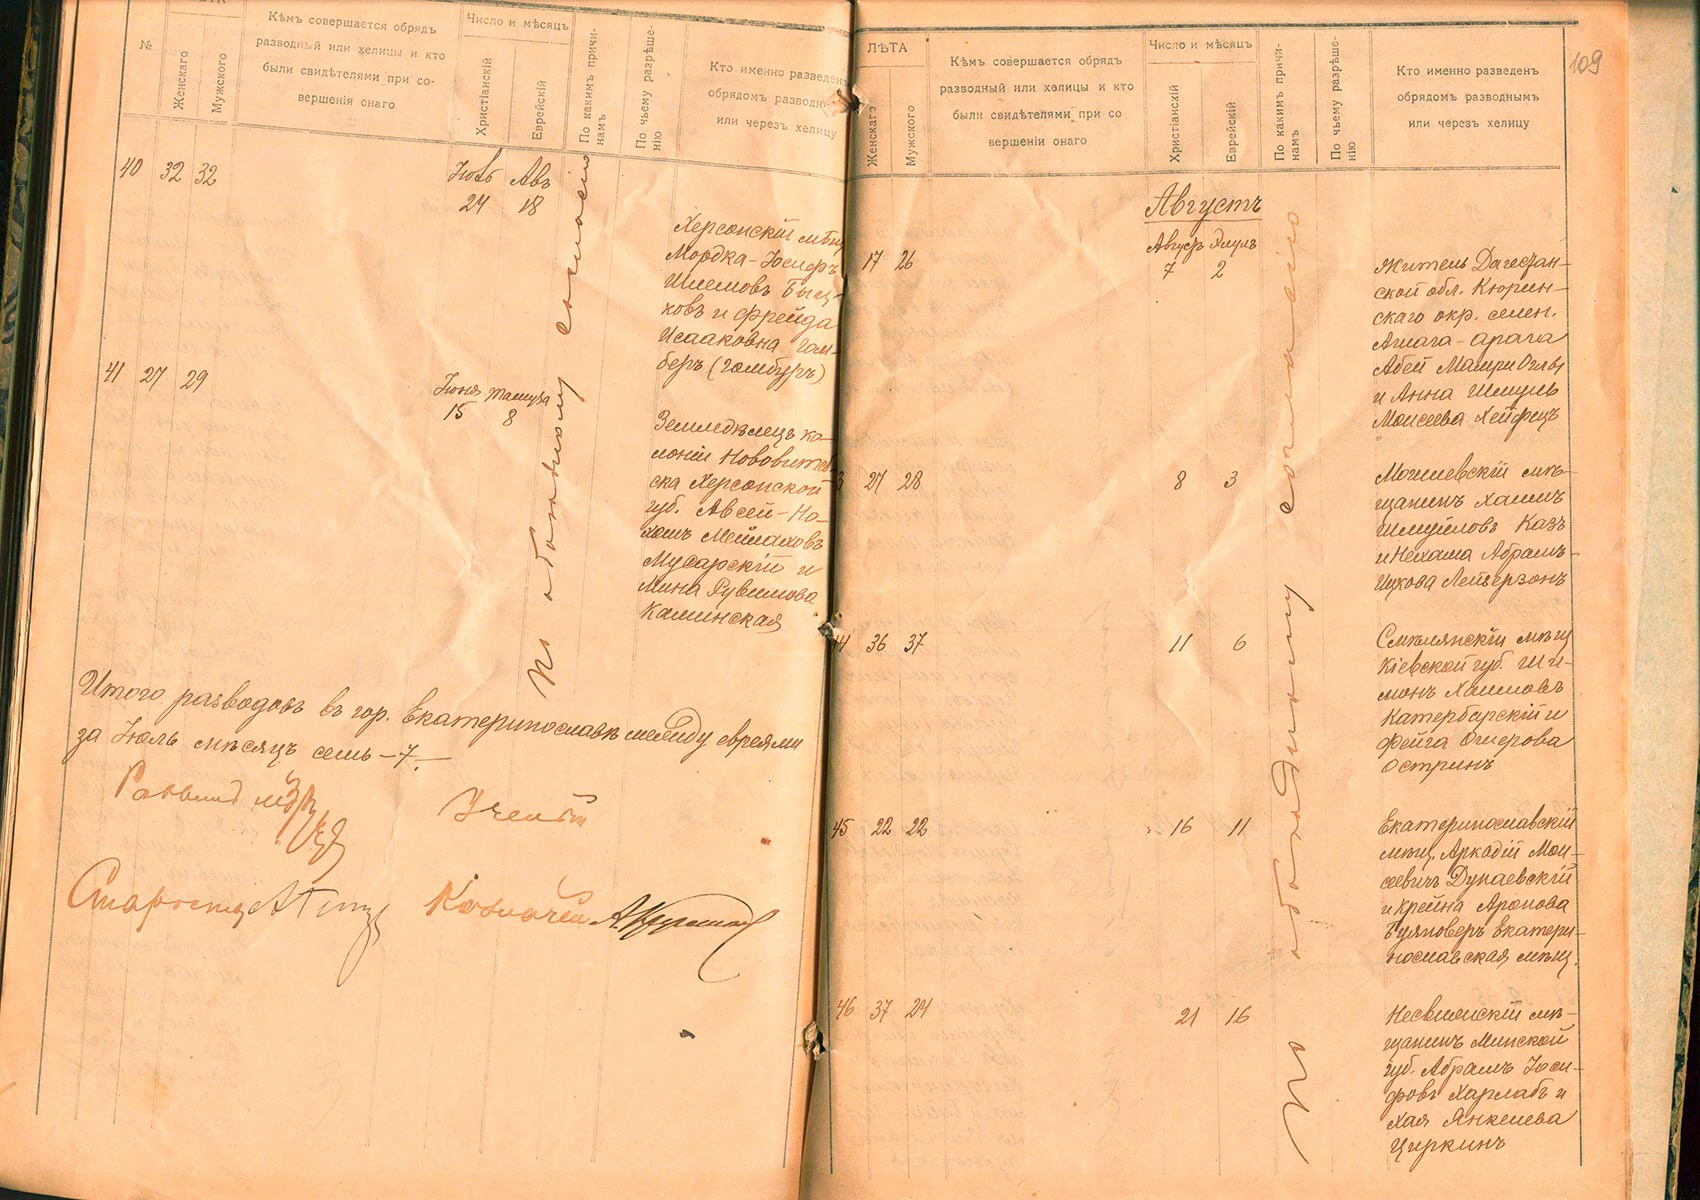 №
Женскаго
Мужского
Кѣмъ совершается обрядъ
разводный или хелицы и кто
были свидѣтелями при со-
вершенія онаго
Число и мѣсяцъ
Христіанскій
Еврейскій
По какимъ причи-
намъ
По чьему разрѣше-
нію
Кто именно разведенъ
обрядомъ разводн
или через хелицу
40 32 32
Авъ
24 18
Херсонскій мѣщ
Мордка-Іосифъ
Шлемовъ
ховъ и Фрейда
Исааковна Гам-
беръ (Гамбургъ)
41 27 29
Іюня Тамуза
15 8
Земледѣлецъ ко-
лоніи Нововите
ска Херсонской
губ. Авсей-Но-
хемъ Мейлаховъ
Мусарскій и
Мина Рувимова
Каминская
По обоюдному согласію
Итого разводовъ въ гор. Екатеринославѣ между евреями
за Іюль мѣсяцъ семь-7.
Раввинъ
Ученый
Староста
Казначей
109
ЛѢТА
Женскаго
Мужского
Кѣмъ совершается обрядъ
разводный или хелицы и кто
были свидѣтелями при со
вершеніи онаго
Число и мѣсяцъ
Христіанскій
Еврейскій
По какимъ причи-
намъ
По чьему разрѣше-
нію
Кто именно разведенъ
обрядомъ разводнымъ
или черезъ хелицу
Августъ
Август Элулъ
17 26 7 2
Житель Дагестан-
ской обл. Кюрин-
скаго окр. селен.
Ашага-Арага
Абей Машри Оглы
и Анна Шмуль
Моисеева Хейфецъ
3 27 28 8 3
Могилевскій мѣ-
щанинъ Хаимъ
Шмуйловъ Казъ
и Нехама Абрамъ-
Ицкова Лейзерзонъ
44 36 37 11 6
Смѣлянскій мѣщ
Кіевской губ. Ши-
монъ Хаимовъ
Катербарскій и
Фейга Ошерова
Остринъ
45 22 22 16 11
Екатеринославскій
мѣщ. Аркадій Мои-
сеевичъ Дунаевскій
и Крейна Аронова
екатери-
нославская мѣщ.
46 37 24 21 16
Несвижскій мѣ-
щанинъ Минской
губ. Абрамъ Іоси-
фовъ Харлабъ и
Хая Янкелева
Циркинъ
По обоюдному согласію